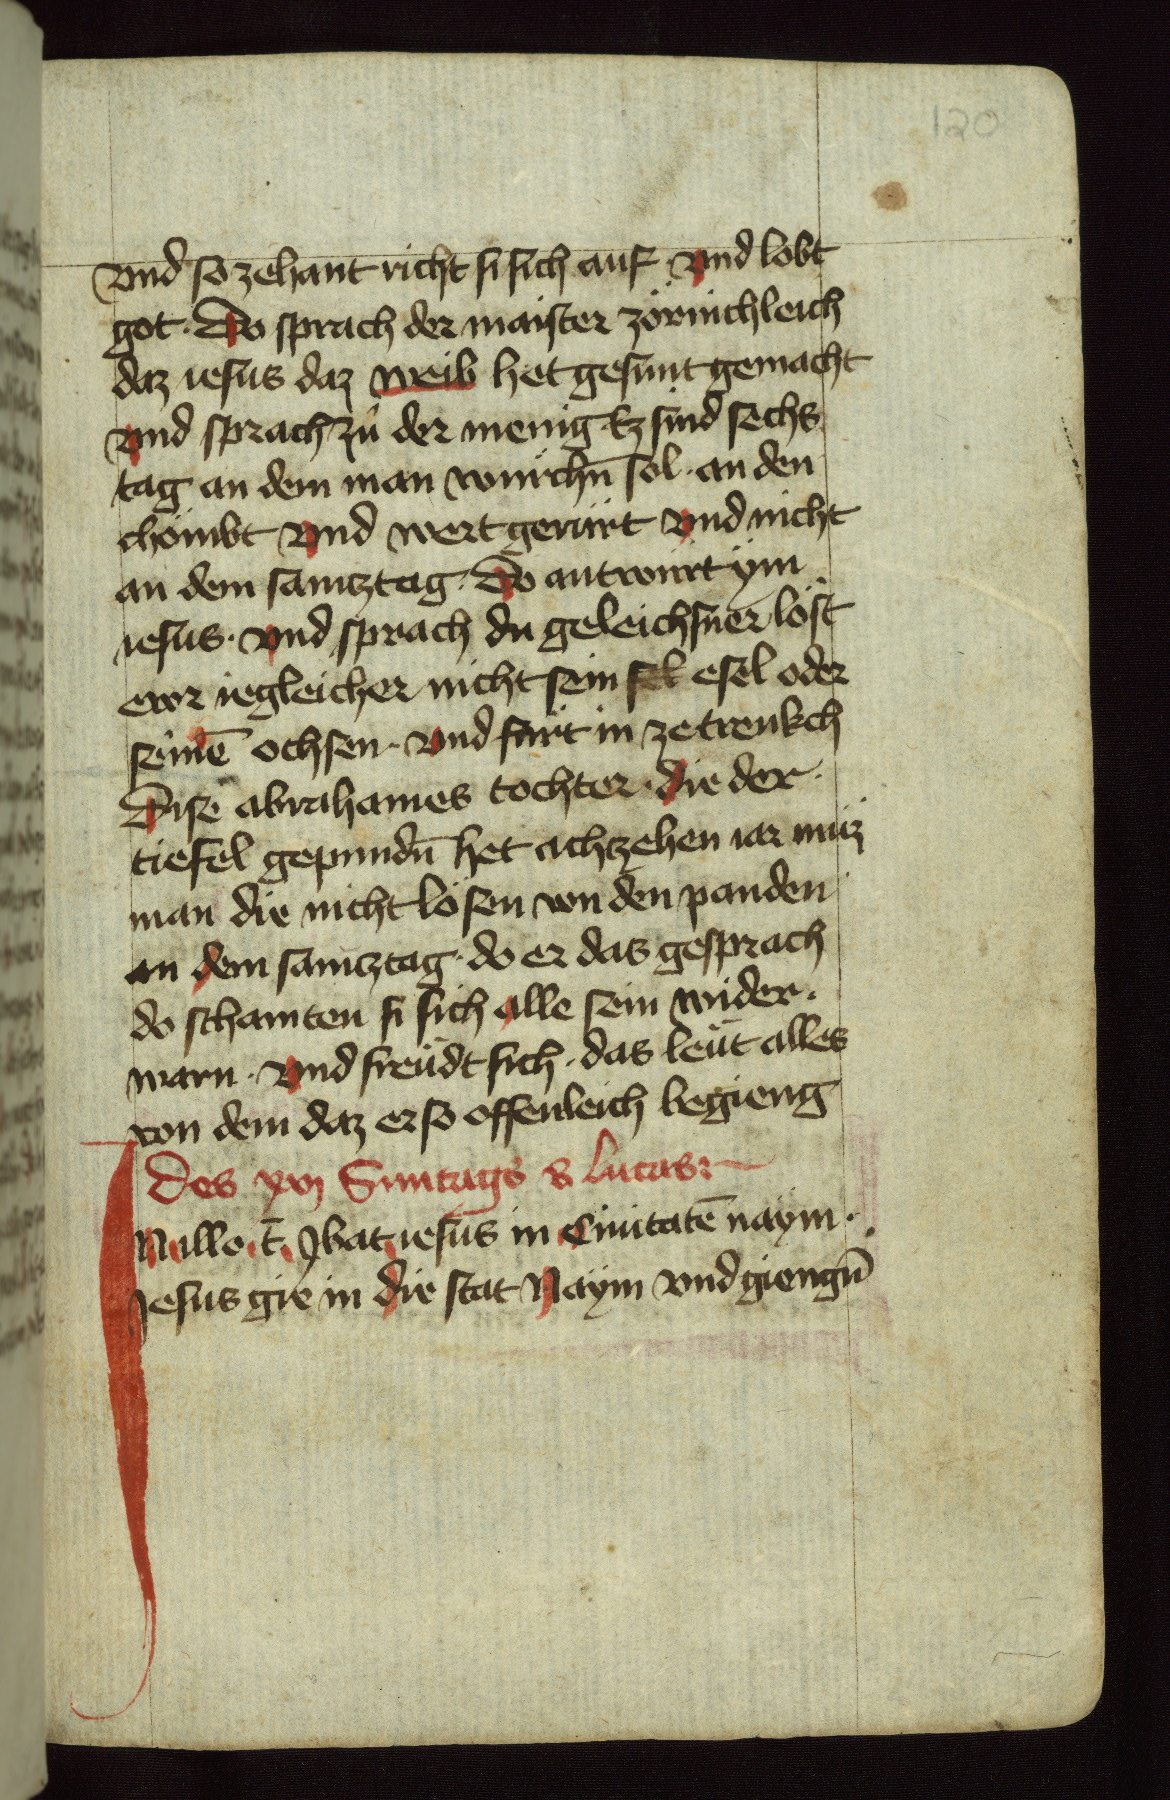 120
vnd so zehant richt si sich auf · vnd lobt
got · Do sprach der maister zörnichleich
daz iesus daz weib het gesunt gemacht
vnd sprach zů der menig · Ez sind sechs
tag an dem man würchn̄ sol · an den
chömbt vnd wert gerürt vnd nicht
an dem samtztag · Do antwürt ÿm
iesus · vnd sprach du geleichsner löst
ewr iegleicher nicht sein esel oder
seinē ochsen · vnd fürt in ze trenkch
Dise abrahames tochter · die der
tiefel gepundn̄ het achtzehen iar muz
man die nicht lösen von den panden
an dem samtztag · do er das gesprach
do schamten si sich alle sein wider ·
warn · vnd freüdt sich · das leüt alles
von dem daz er so offenleich begieng
Des xvj Suntags S Lucas
In illo t̄ · Jbat iesus in Ciuitatē naym ·
Jesus gie in die stat Naÿm vnd giengn̄